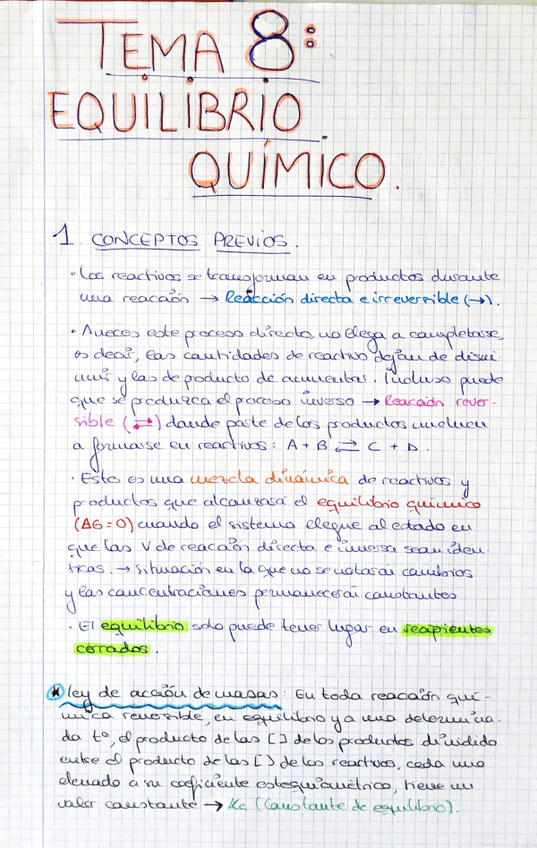 TEMA 8:
EQUILIBRIO
QUÍMICO.
1 CONCEPTOS PREVIOS.
· Los reactivos se transforman en productos durante
una reacción → Reacción directa e irreversible (→).
· A veces este proceso directo, no llega a completarse,
es decir, las cantidades de reactivo dejan de dismi
nuir y las de producto de aumentar. Incluso puede
que se produzca el proceso inverso → Reacción rever-
sible (⇄) donde parte de los productos vuelven
a formarse en reactivos: A + B ⇄ C + D.
· Esto es una mezcla dinámica de reactivos y
productos que alcanzará el equilibrio químico
(ΔG = 0) cuando el sistema llegue al estado en
que las V de reacción directa e inversa sean idén-
ticas. → situación en la que no se notarán cambios
y las concentraciones permanecerán constantes
· El equilibrio solo puede tener lugar en recipientes
cerrados.
* ley de acción de masas: En toda reacción quí-
mica reversible, en equilibrio y a una determina-
da tª, el producto de las [ ] de los productos dividido
entre el producto de las [ ] de los reactivos, cada uno
elevado a su coeficiente estequiométrico, tiene un
valor constante → Kc (Constante de equilibrio).